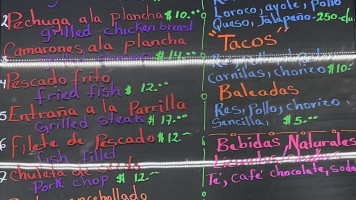 2 Pechuga a la plancha $10.00
grilled chicken breast
Camarones a la plancha
$14.00
4
Pescado frito
fried fish $12.00
5 Entraña a la Parrilla
Grilled steak $17.00
6 Filete de Pescado $12.00
fish fillet
7 Chuleta
Pork chop $12.00
Loroco, ayote, Pollo
Queso, Jalapeño 2.50
"Tacos"
carnitas, chorizo $10
Baleadas
Res, Pollo, chorizo,
Sencilla, $5.00
Bebidas Naturales
Te, café chocolate, soda